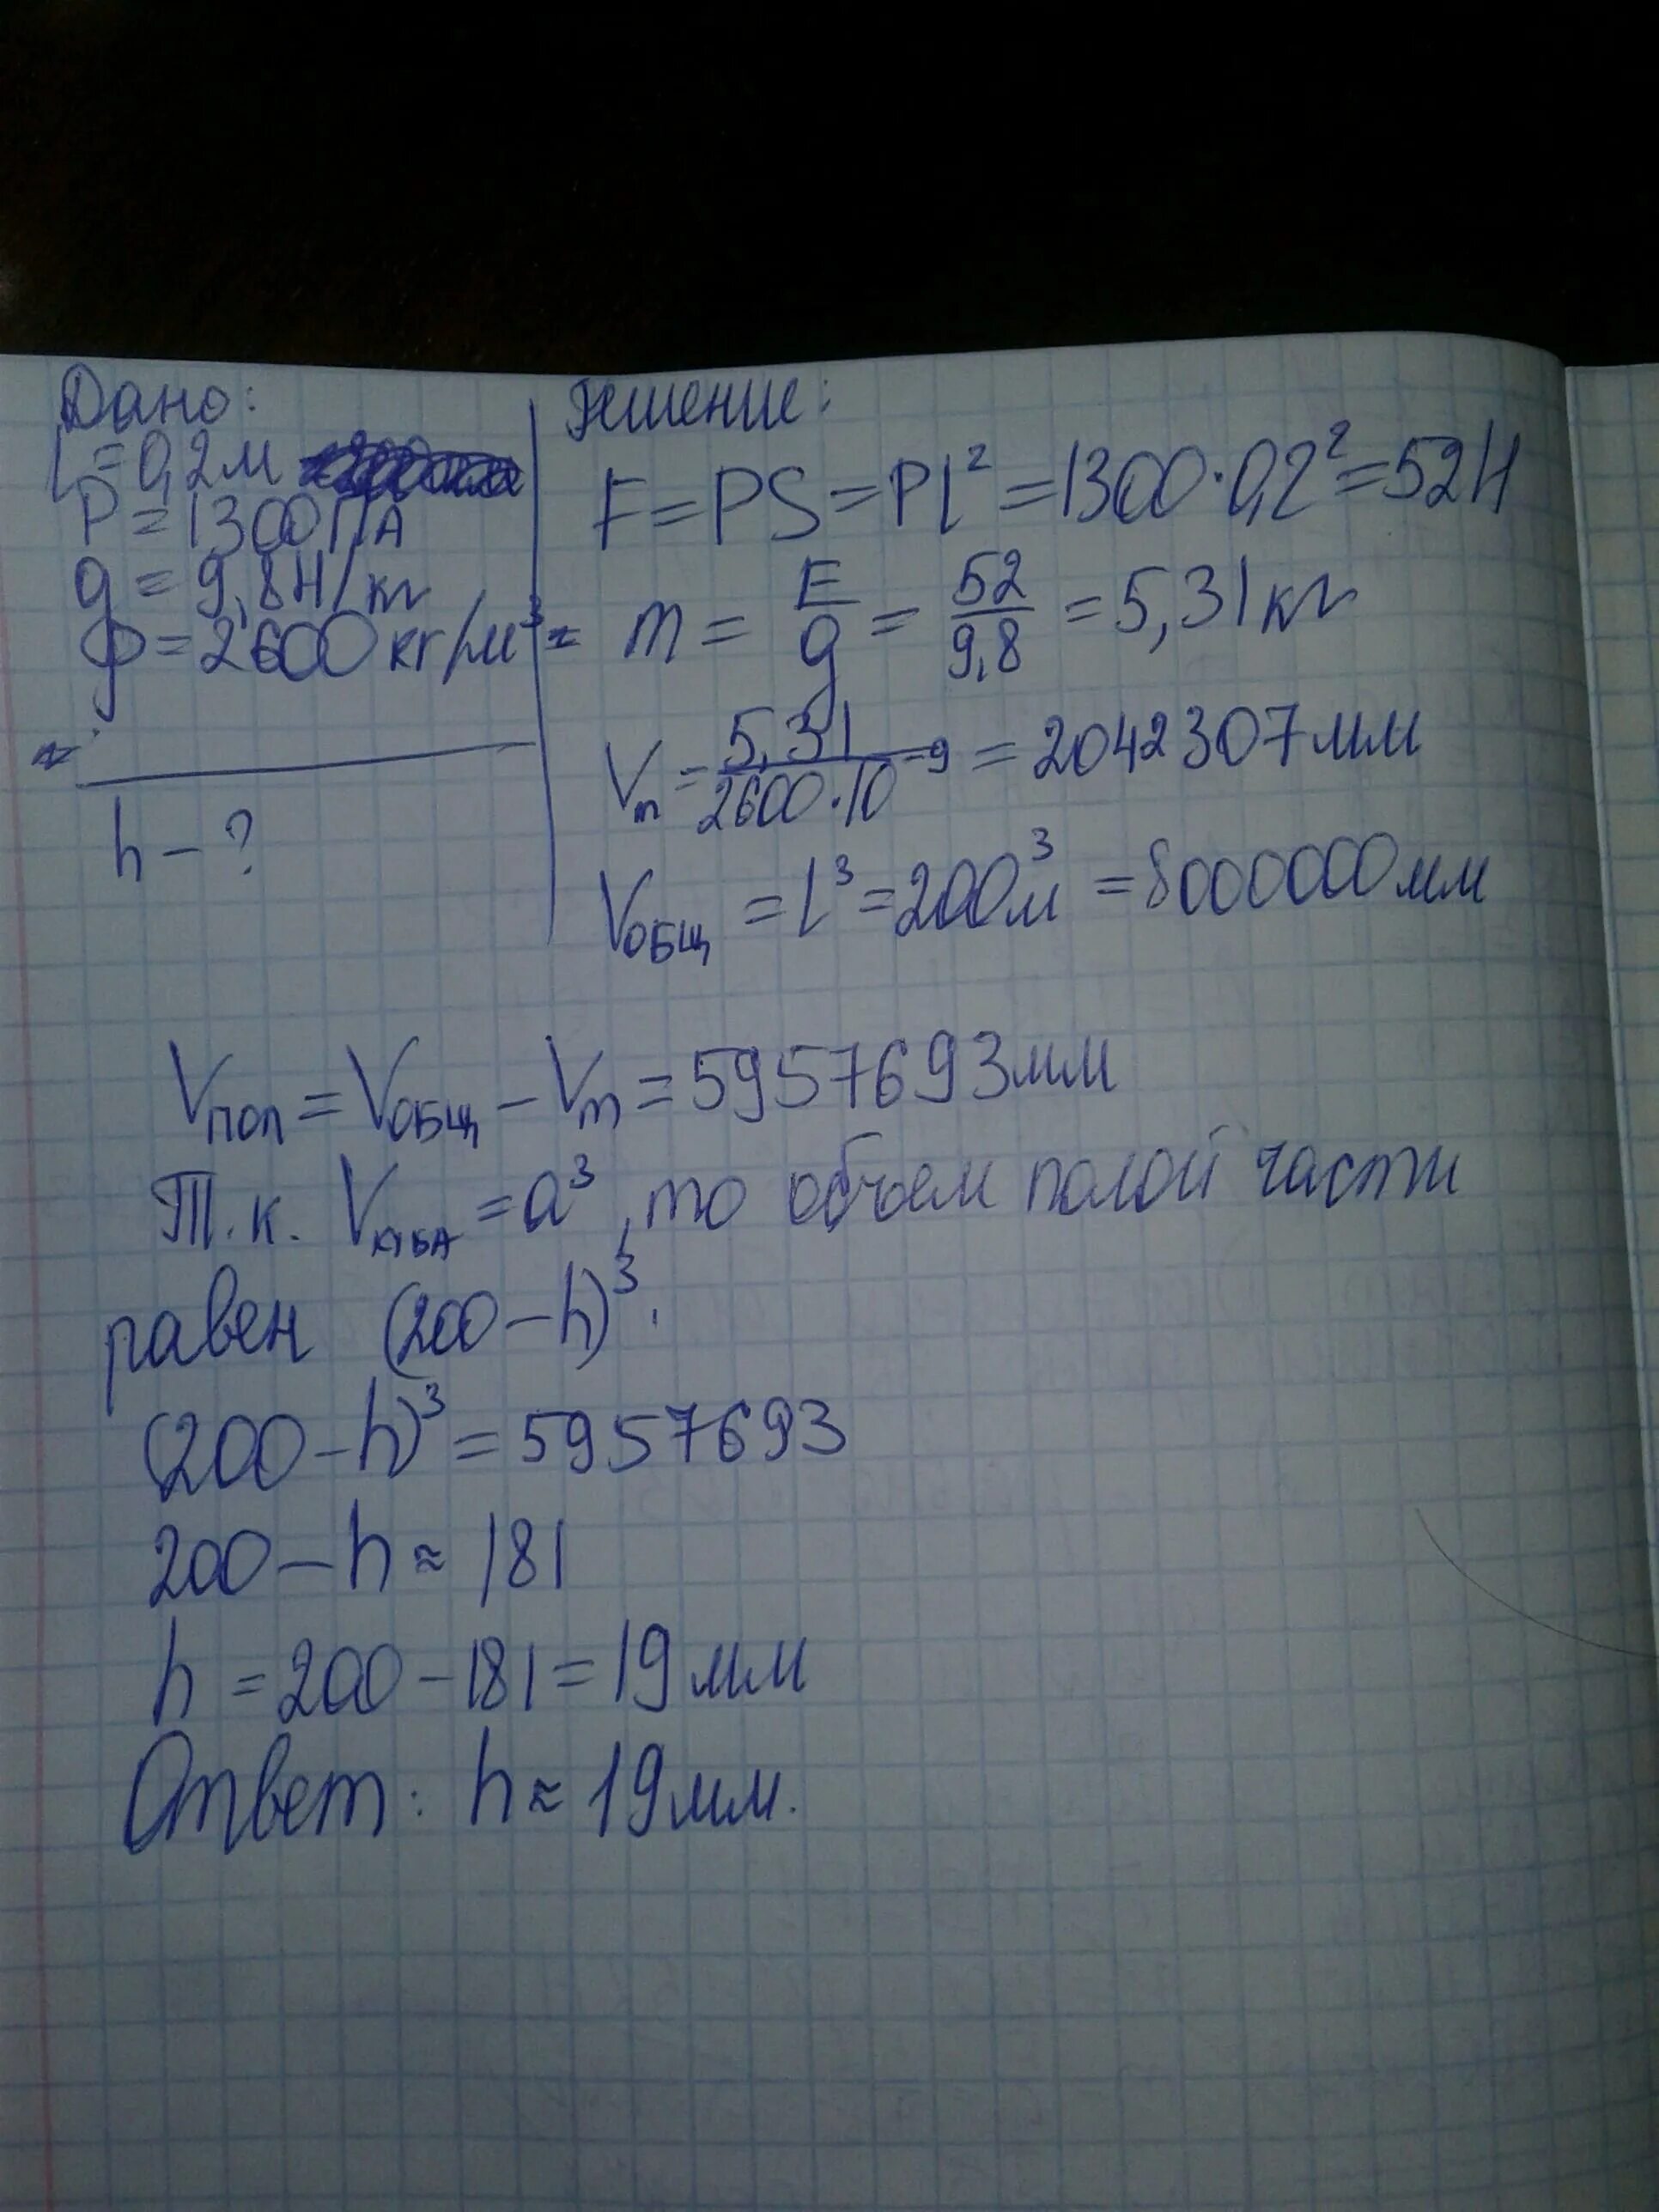 Дано:
l=0,2м
P=1300ПА
g=9,8Н/кг
ρ=2600кг/м³
h-?
Решение:
F=PS=Pl²=1300·0,2²=52Н
m=F/g=52/9,8=5,31кг
Vm=5,31/2600·10⁻⁹=2042307мм
Vобщ=l³=200м³=8000000мм
Vпол=Vобщ-Vm=5957693мм
Т.к. Vкуба=a³, то объем полой части
равен (200-h)³.
(200-h)³=5957693
200-h≈181
h=200-181=19мм
Ответ: h≈19мм.